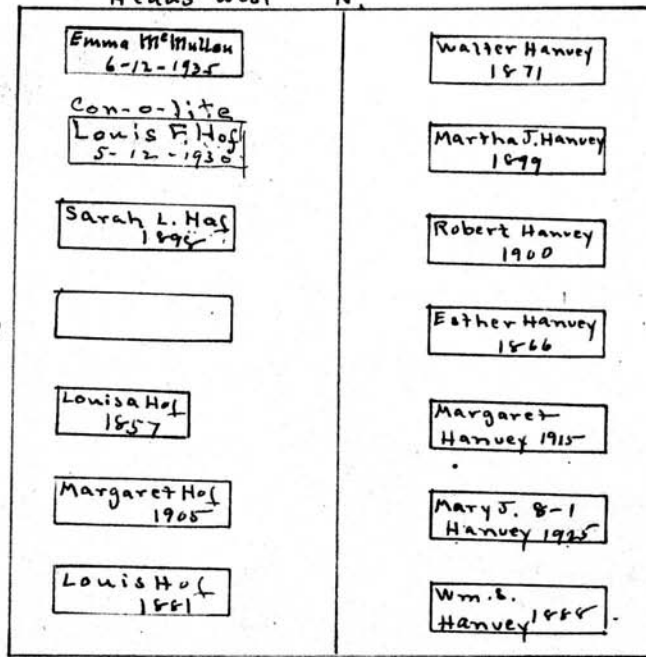 Heads West N.
Emma McMullen
6-12-1935
Con-o-lite
Louis F. Hof
5-12-1930
Sarah L. Hof
1898
Louisa Hof
1857
Margaret Hof
1905
Louis Hof
1881
Walter Hanvey
1871
Martha J. Hanvey
1899
Robert Hanvey
1900
Esther Hanvey
1866
Margaret
Hanvey 1915
Mary J. 8-1
Hanvey 1925
Wm. S.
Hanvey 1888